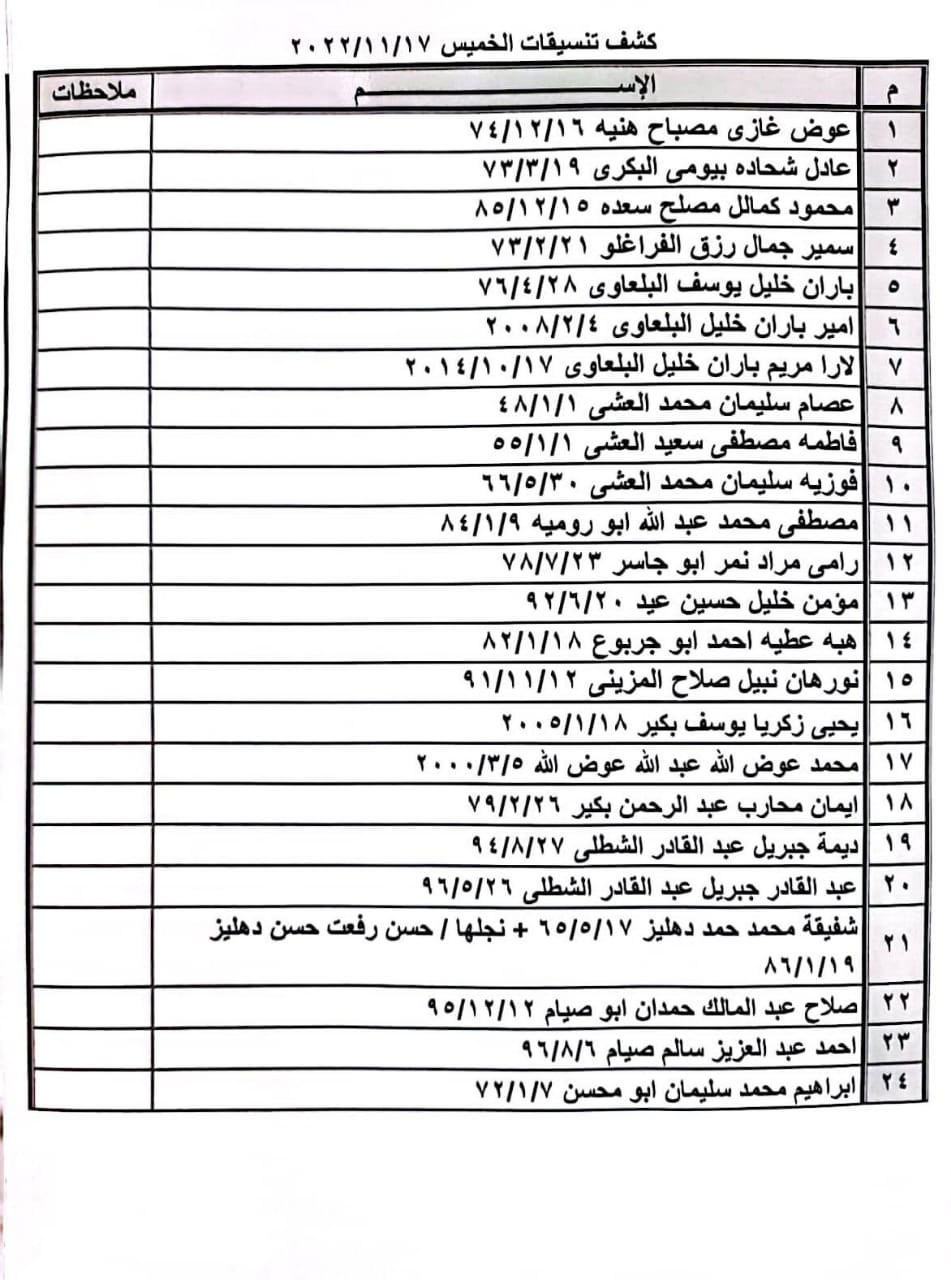 كشف تنسيقات الخميس ٢٠٢٢/١١/١٧
م الإســـــــــم ملاحظات
١ عوض غازى مصباح هنيه ٧٤/١٢/١٦
٢ عادل شحاده بيومى البكرى ٧٣/٣/١٩
٣ محمود كمالل مصلح سعده ٨٥/١٢/١٥
٤ سمير جمال رزق الفراغلو ٧٣/٢/٢١
٥ باران خليل يوسف البلعاوى ٧٦/٤/٢٨
٦ امير باران خليل البلعاوى ٢٠٠٨/٢/٤
٧ لارا مريم باران خليل البلعاوى ٢٠١٤/١٠/١٧
٨ عصام سليمان محمد العشى ٤٨/١/١
٩ فاطمه مصطفى سعيد العشى ٥٥/١/١
١٠ فوزيه سليمان محمد العشى ٦٦/٥/٣٠
١١ مصطفى محمد عبد الله ابو روميه ٨٤/١/٩
١٢ رامى مراد نمر ابو جاسر ٧٨/٧/٢٣
١٣ مؤمن خليل حسين عيد ٩٢/٦/٢٠
١٤ هبه عطيه احمد ابو جربوع ٨٢/١/١٨
١٥ نورهان نبيل صلاح المزينى ٩١/١١/١٢
١٦ يحيى زكريا يوسف بكير ٢٠٠٥/١/١٨
١٧ محمد عوض الله عبد الله عوض الله ٢٠٠٠/٣/٥
١٨ ايمان محارب عبد الرحمن بكير ٧٩/٢/٢٦
١٩ ديمة جبريل عبد القادر الشطلى ٩٤/٨/٢٧
٢٠ عبد القادر جبريل عبد القادر الشطلى ٩٦/٥/٢٦
٢١ شفيقة محمد حمد دهليز ٦٥/٥/١٧ + نجلها / حسن رفعت حسن دهليز
٨٦/١/١٩
٢٢ صلاح عبد المالك حمدان ابو صيام ٩٥/١٢/١٢
٢٣ احمد عبد العزيز سالم صيام ٩٦/٨/٦
٢٤ ابراهيم محمد سليمان ابو محسن ٧٢/١/٧